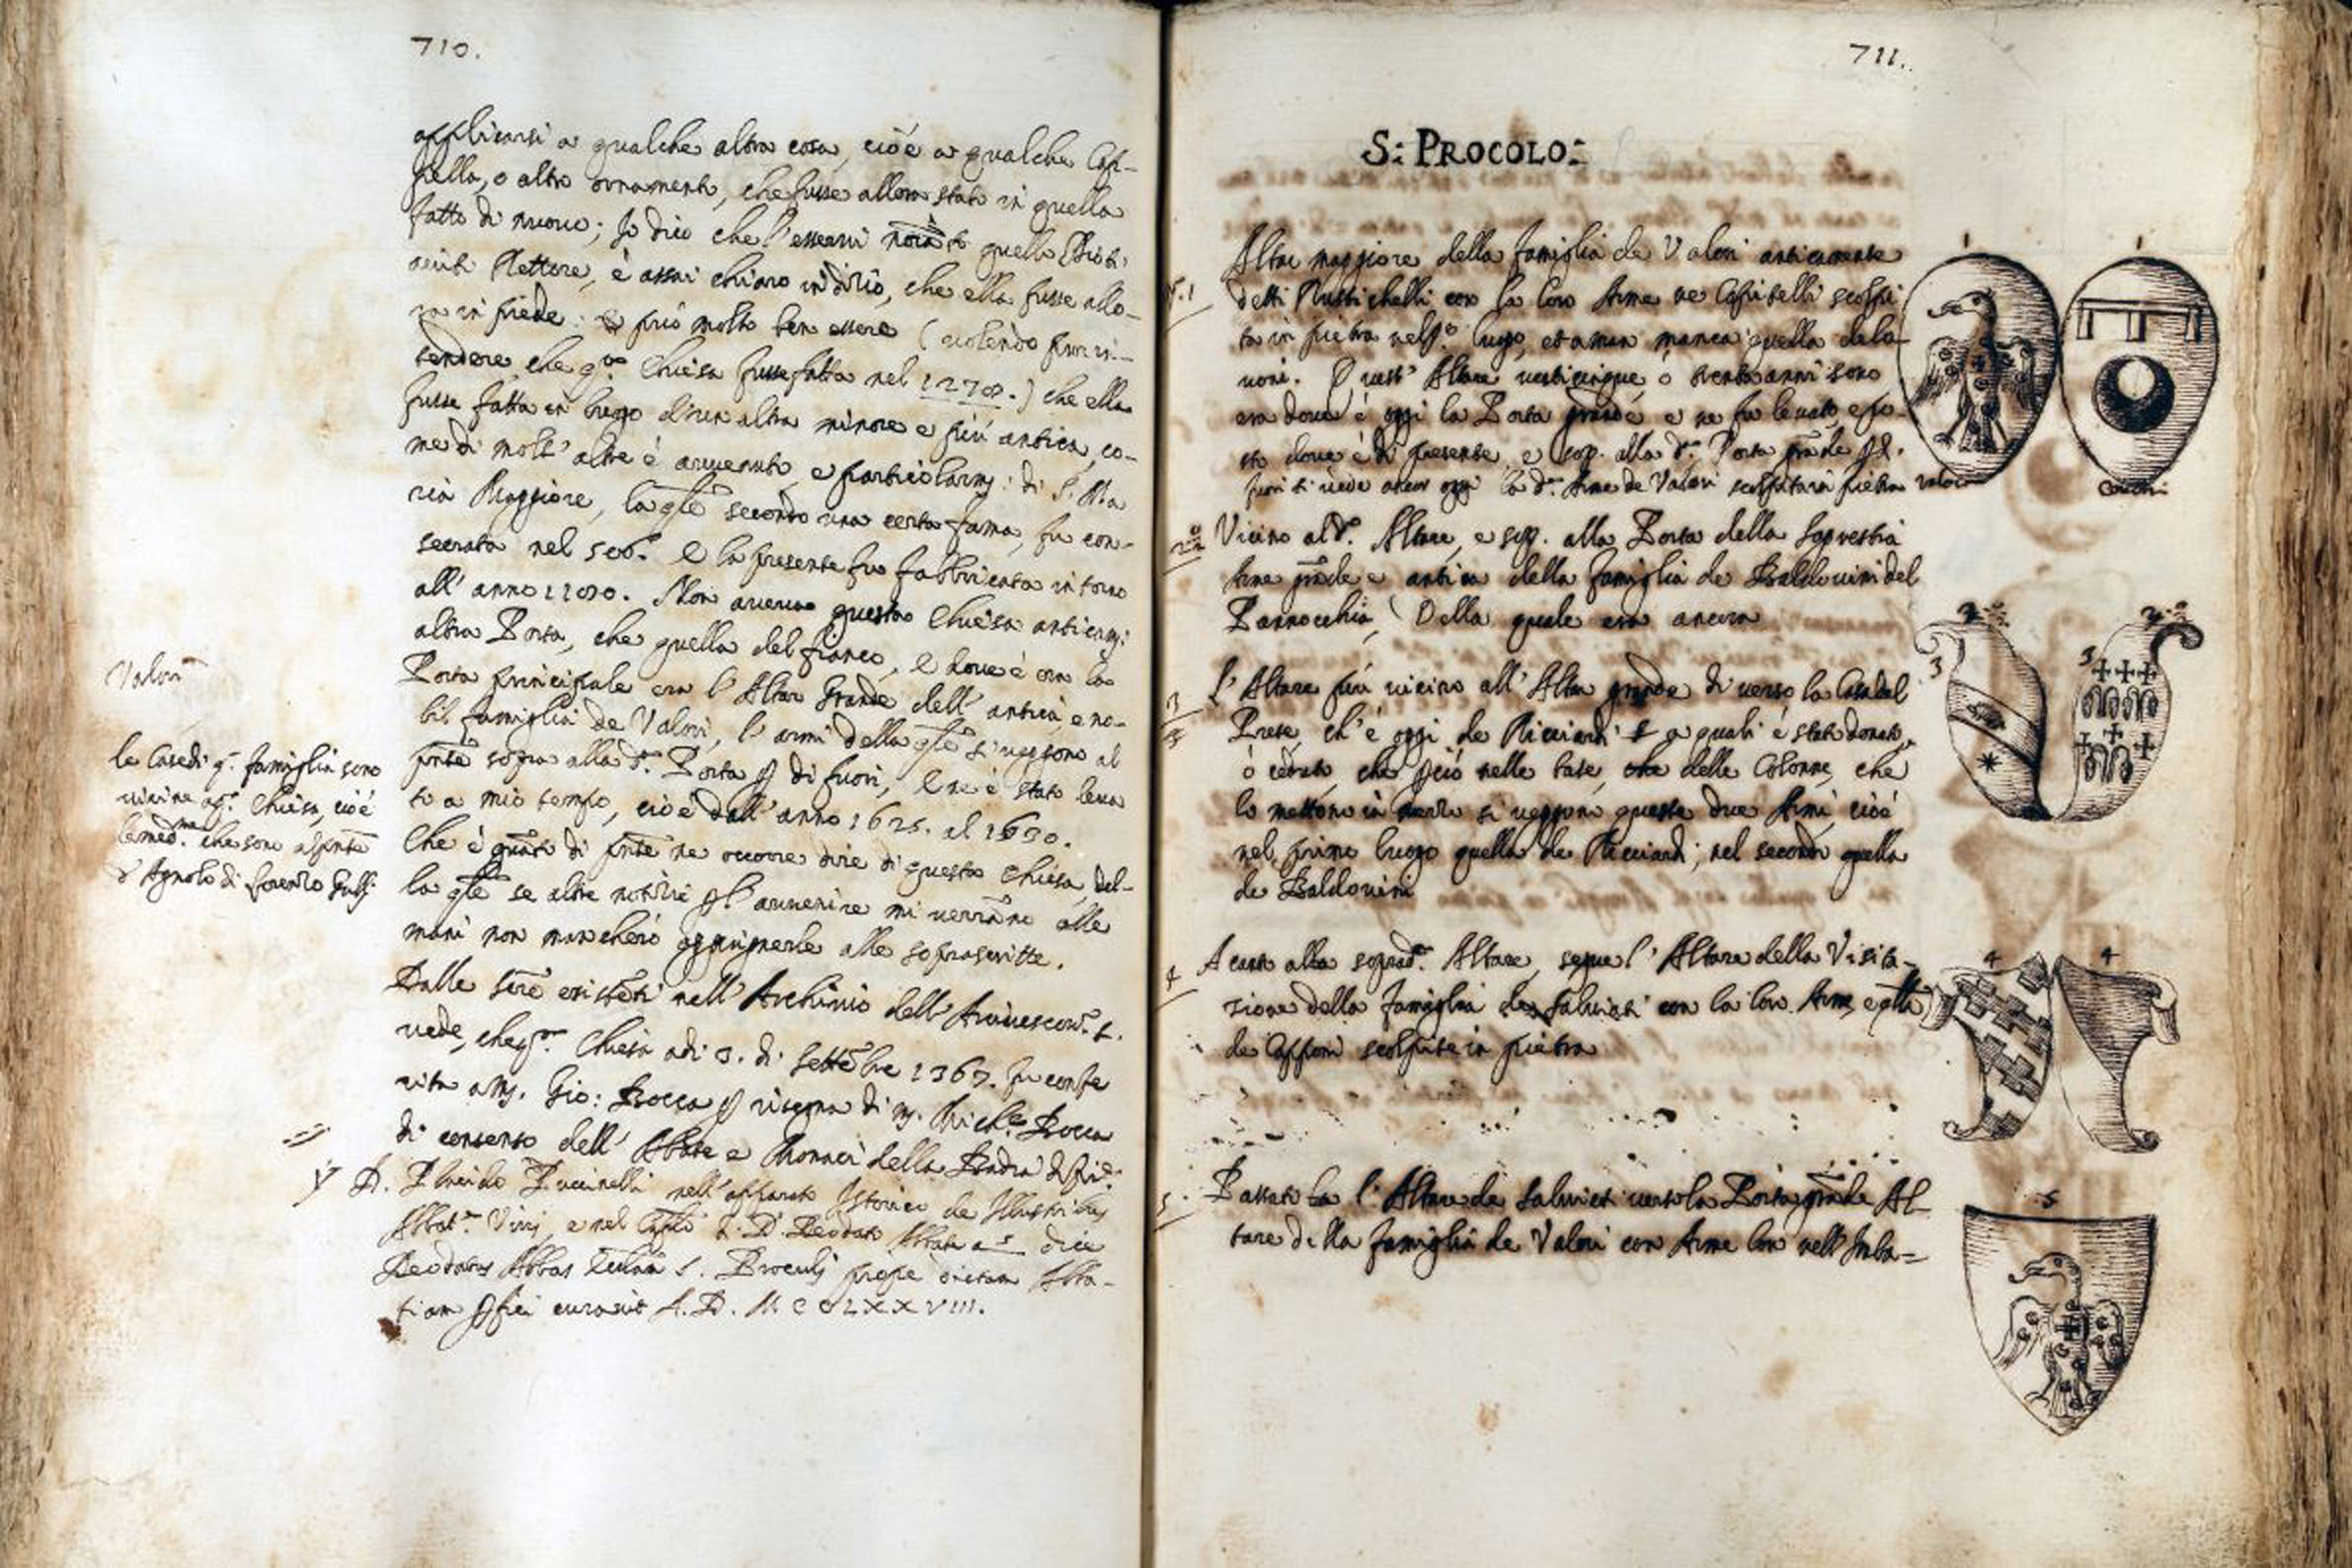 710.
applicarsi a qualche altra cosa, cioè a qualche Cap-
pella, o altro ornamento, che fusse allora stato in quella
fatto di nuovo; Io dico che l'esservi quello
Rettore, è assai chiaro indizio, che ella fusse allo-
ra in piede: e può molto ben essere (volendo pur in-
tendere, che q.ta Chiesa fusse fatta nel 1278.) che ella
fusse fatta in luogo d'un altra minore e più antica, co-
me di molt' altre è avvenuto, e particolarm.: di S. Ma
ria Maggiore, la qle secondo una certa fama, fu con-
secrata nel 500. e la presente fu fabbricata intorno
all' anno Non aveva questa Chiesa anticam:
altra Porta, che quella del fianco, e dove è ora la
Porta principale era l' Altar Grande dell' antica, e no-
bil famiglia de Valori, l' armi della qle si veggono al
pnte sopra alla d.a Porta p di fuori, e ne è stato leva
to a mio tempo, cioè dall' anno 1625. al 1630.
Che è qnto di pnte ne occorre dire di questa Chiesa, del-
la qle se altre notizie p l' avvenire mi verranno alle
mani non mancherò aggiugnerle alle soprascritte.
Dalle scre esistenti nell' Archivio dell' Arcivescov.o si
vede, che q.ta Chiesa adi 3. di Settēbre 1367. fu confe
rita a M. Gio: Bocca p risegna di M. Bocca
di consenso dell' Abate e Monaci della Badia di
D. Placido Puccinelli nell' apparato Istorico de Illustribus
Abbat. Viris, e nel D. Deodato Abbate dice
Deodatus Abbas S. Proculi prope dictam Abba-
tiam pfici curavit A. D. MCCLXXVIII.
Valori
le Case di q.a famiglia sono
vicine a q.a Chiesa, cioè
le med.me che sono al pnte
d' Agnolo di Lorenzo
711.
S: PROCOLO:
Altar maggiore della famiglia de Valori anticamente
detti Rustichelli con la loro Arme ne Capitelli scolpi
ta in pietra nel p.o luogo, manca quella de
Quest' Altare venticinque, o trenta anni sono
era dove è oggi la Porta grande e ne fu levato, e po-
sto dove è di presente, e sop. alla d.a Porta grande p d.
fuori si vede ancor oggi la d.a Arme de Valori scolpita in pietra
Valori
Vicino al d.o Altare, e sop. alla Porta della Sagrestia
Arme grande e antica della famiglia de Baldovini del
Pannocchia, Della quale era ancora
2
3
L' Altare più vicino all' Altar grande di verso la Casa del
Prete, ch' è oggi de Ricciardi a quali è stato donato,
o ceduto, che però nelle base delle Colonne, che
lo mettono in mezzo si veggono queste due Armi, cioè
nel primo luogo quella de Ricciardi; nel secondo quella
de Baldovini
3
3
4
A canto alla soprad.a Altare, segue l' Altare della Visita-
zione della famiglia de Salviati con la loro Arme, e qlla
de Capponi scolpite in pietra
4
4
5.
Passato l' Altare de Salviati verso la Porta grande Al
tare della famiglia de Valori con Arme loro nell' Imba-
5